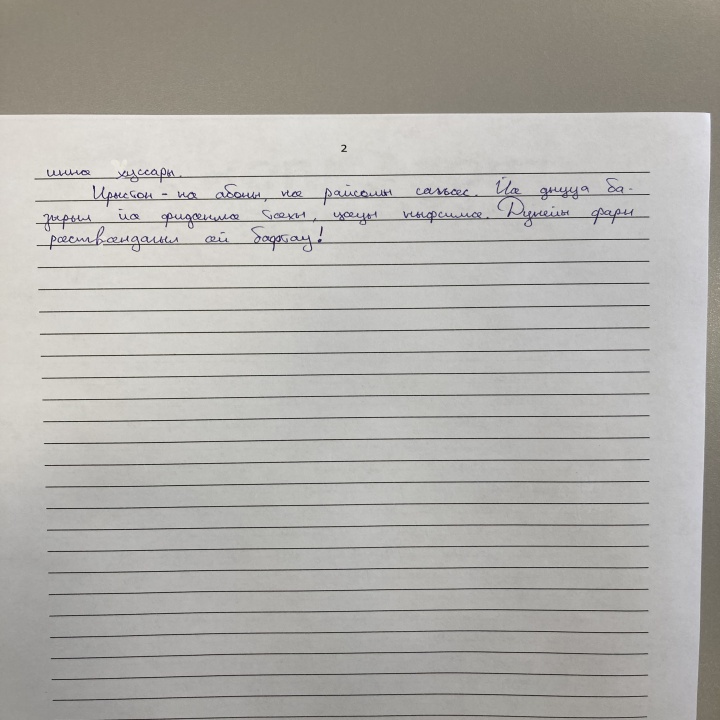 2
иннæ хуссары.
Ирыстон - нæ абоны, нæ райсомы сагъæс. Йæ дыууæ ба-
зырыл йæ фидæнмæ тæхы, цæуы ныфсимæ. Дунейы фарн
рæствæндагыл æй бафтау!